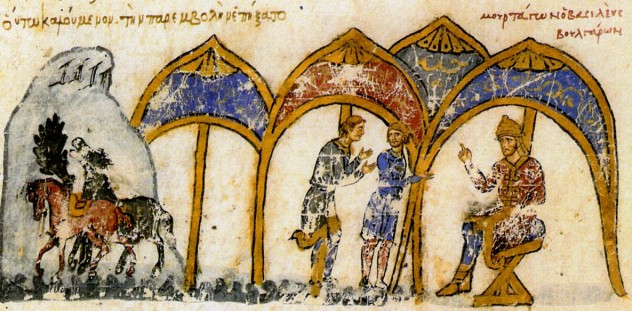 οὕτω καλούμενον. τὴν παρεμβολὴν ἐπήξατο
μουρτάγων ὁ βασιλεὺς
βουλγάρων